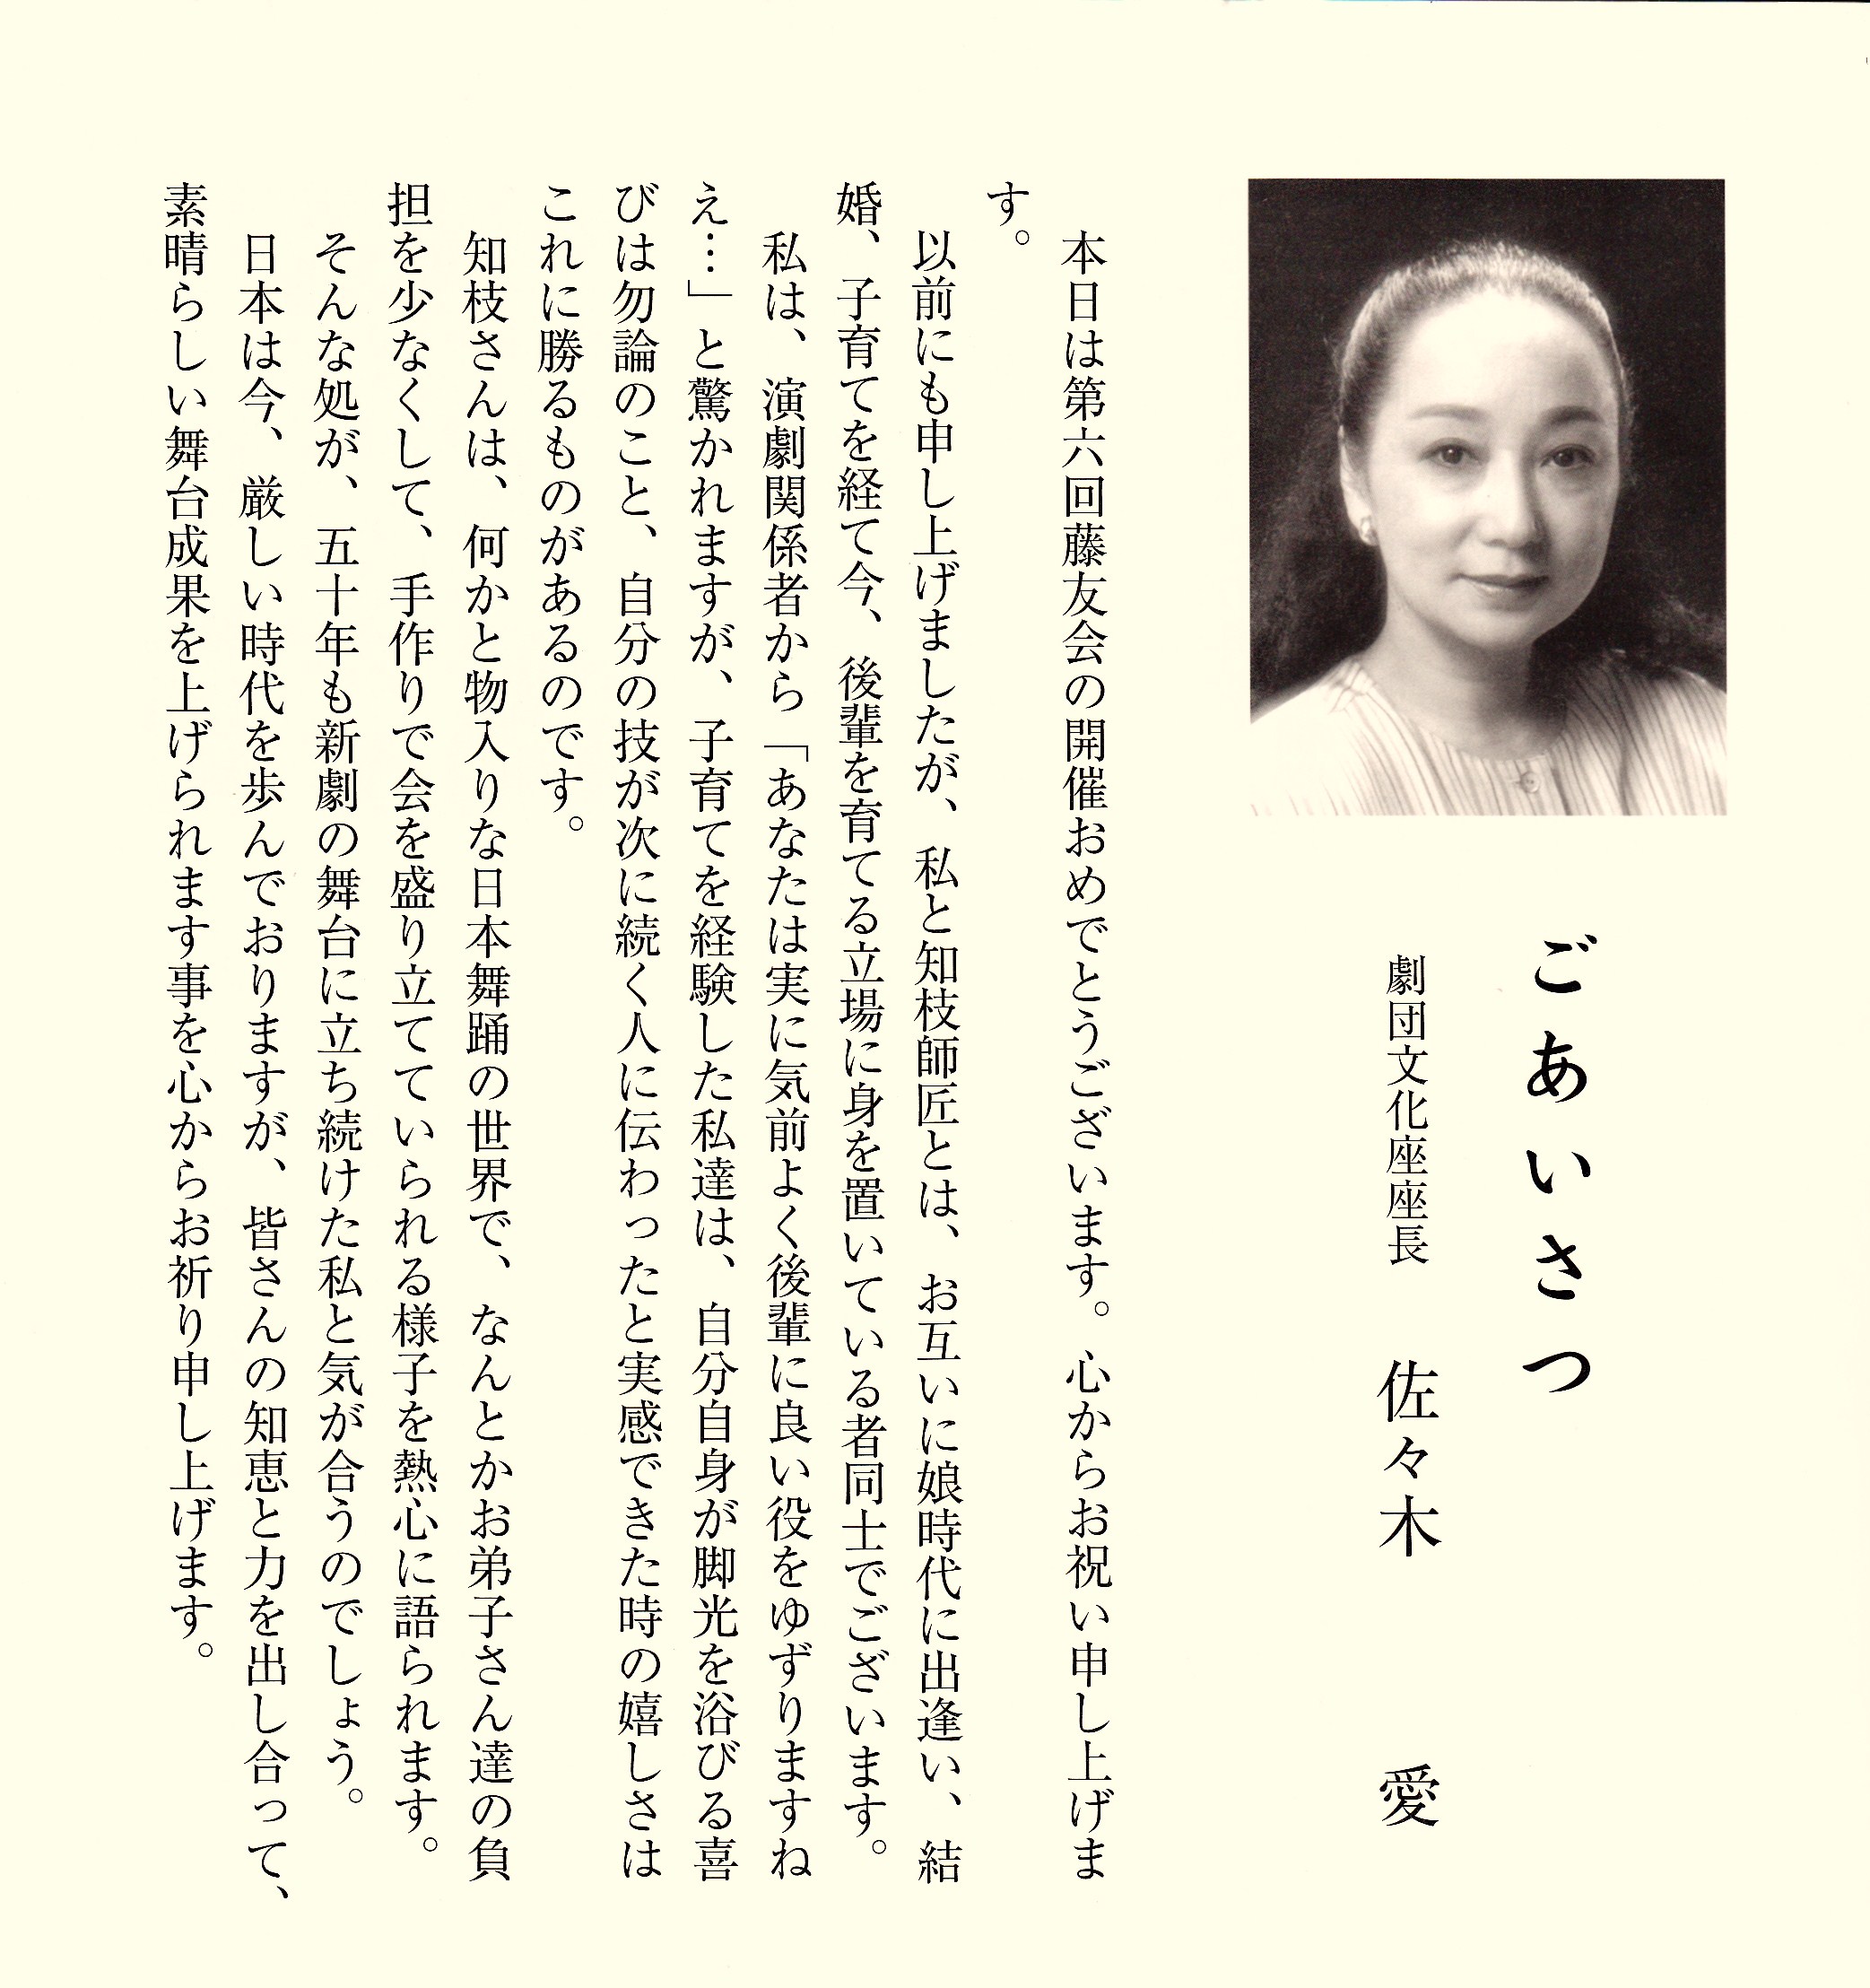 ごあいさつ
劇団文化座座長　佐々木　愛
本日は第六回藤友会の開催おめでとうございます。心からお祝い申し上げま
す。
以前にも申し上げましたが、私と知枝師匠とは、お互いに娘時代に出逢い、結
婚、子育てを経て今、後輩を育てる立場に身を置いている者同士でございます。
私は、演劇関係者から「あなたは実に気前よく後輩に良い役をゆずりますね
え…」と驚かれますが、子育てを経験した私達は、自分自身が脚光を浴びる喜
びは勿論のこと、自分の技が次に続く人に伝わったと実感できた時の嬉しさは
これに勝るものがあるのです。
知枝さんは、何かと物入りな日本舞踊の世界で、なんとかお弟子さん達の負
担を少なくして、手作りで会を盛り立てていられる様子を熱心に語られます。
そんな処が、五十年も新劇の舞台に立ち続けた私と気が合うのでしょう。
日本は今、厳しい時代を歩んでおりますが、皆さんの知恵と力を出し合って、
素晴らしい舞台成果を上げられます事を心からお祈り申し上げます。